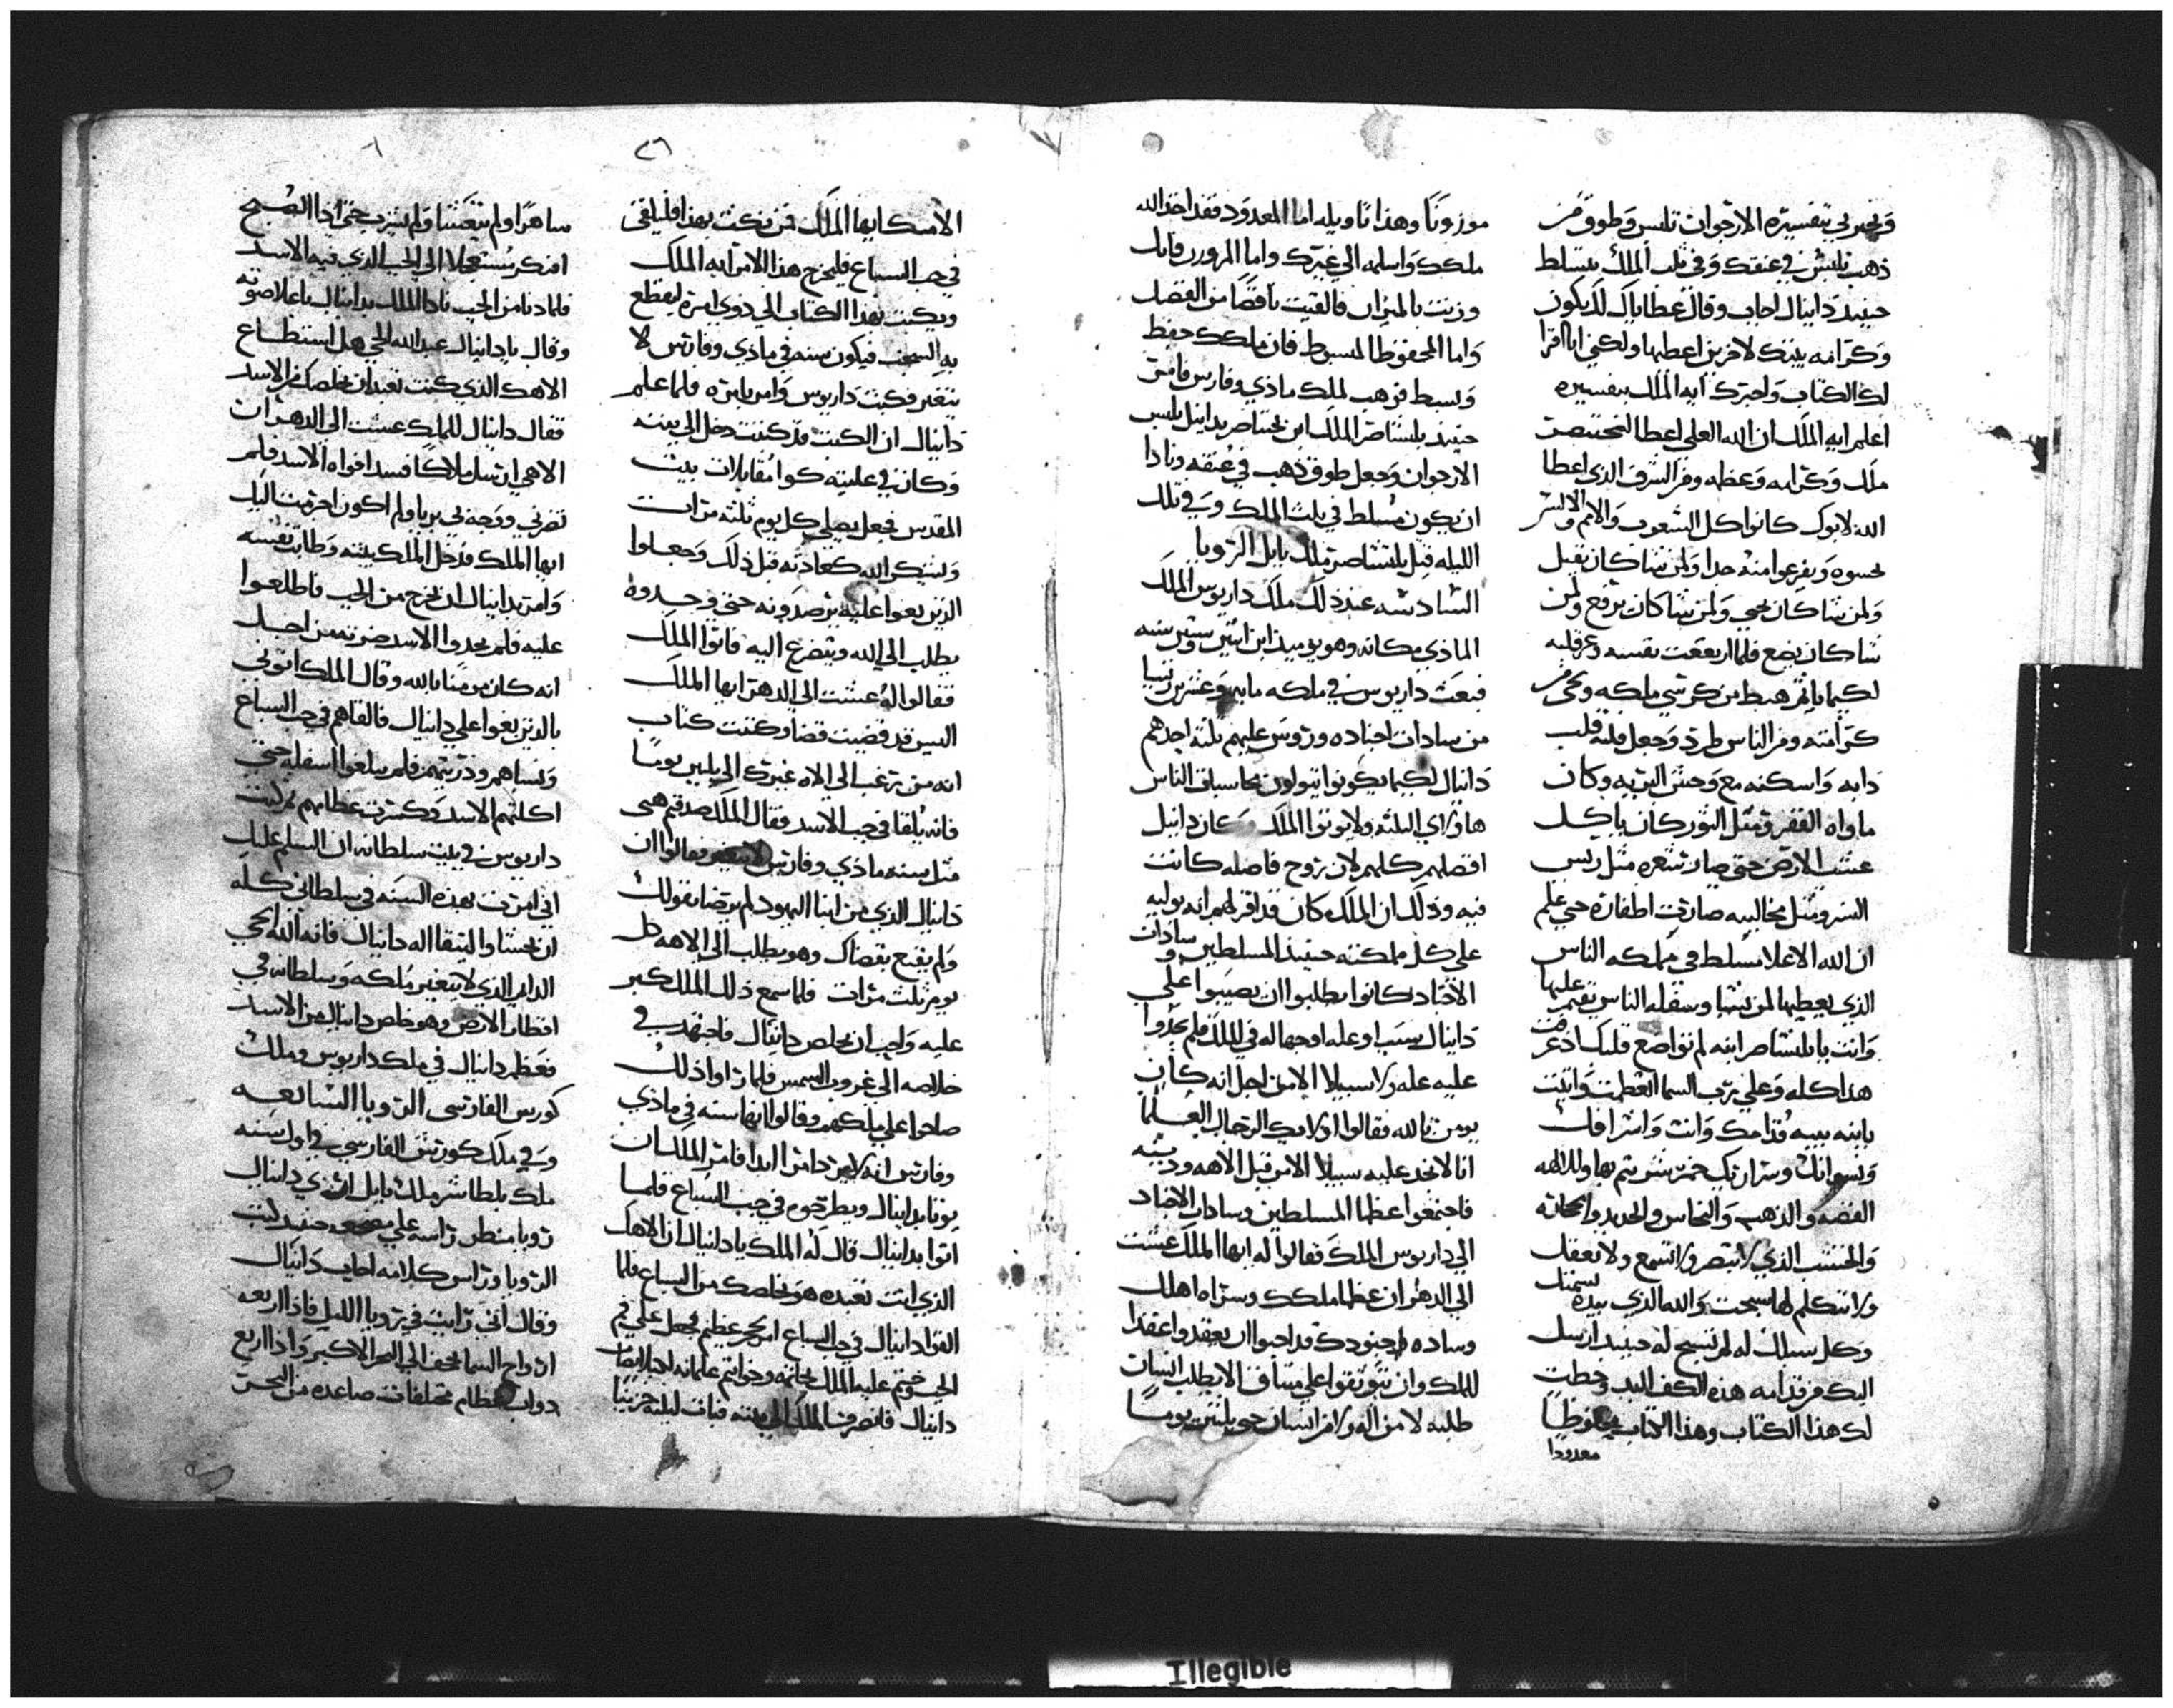 وتخبرني بتفسيره الارجوان تلبس وطوق من
ذهب تلبس في عنقك وفي ثلث الملك تتسلط
حينيد دانيال اجاب وقال عطاياك لك يكون
وكرامه بيتك لاخرين اعطيها ولكني انا اقرا
لك الكتاب واخبرك ايه الملك بتفسيره
اعلم ايه الملك ان الله العلي اعطا لبختنصر
ملك وكرامه وعظمه ومن الشرف الذي اعطا
الله لابوك كانوا كل الشعوب والامم والالسن
يخسوه ويفزعوا منه جدا ولمن شا كان يقتل
ولمن شا كان يحيي ولمن شا كان يرفع ولمن
شا كان يضع فلما ارتفعت نفسه وعز قلبه
لكيما ياثم هبط من كرسي ملكه ونحي من
كرامته ومن الناس طرد وجعل قلبه قلب
دابه واسكنه مع وحش البريه وكان
ماواه القفر ومثل الثور كان ياكل
عشب الارض حتى صار شعره مثل ريش
النسر ومثل مخاليبه صارت اظفاره حتى علم
ان الله الاعلا مسلط في مملكه الناس
الذي يعطيها لمن يشا وسفله الناس يقيم عليها
وانت يا بلتشاصر ابنه لم تواضع قلبك اذ عرفت
هذا كله وعلي رب السما اتعظمت وانيت
بانيه بيته قدامك وانت واشرافك
ونسوانك وسراريك خمر تشرتم بها ولالهه
الفضه والذهب والنحاس والحديد والحجاره
والخشب الذي لا تبصر ولا تسمع ولا تعقل
ولا تتكلم لها سبحت والله الذي بيده نسمتك
وكل سبلك له لم تسبح له حينيد ارسل
اليك من قدامه هذه الكف اليد وخطت
لك هذا الكتاب وهذا الكتاب محفوظا
معدودا
موزونا وهذا تاويله اما المعدود فقد احد الله
ملكك واسلمه الي غيرك واما الموزون فانك
وزنت بالميزان فالفيت ناقصا من الفضل
واما المحفوظ المبسوط فان ملكك حفظ
وبسط فوهب لملك ماذي وفارس فامر
حينيد بلتشاصر الملك ابن بختناصر بدانيل يلبس
الارجوان وجعل طوق ذهب في عنقه ونادا
ان يكون مسلط في ثلث الملك وفي تلك
الليله قتل بلتشاصر ملك بابل الرويا
السادسه عند ذلك ملك داريوس الملك
الماذي مكانه وهو يوميذ ابن اثنين وستين سنه
فبعث داريوس في ملكه مايه وعشرين نبيا
من سادات اجناده وروس عليهم ثلثه احدهم
دانيال لكيما يكونوا يتولون محاسبات الناس
هاولاي الثلثه ولا يوذوا الملك وكان دانيل
افضلهم كلهم لان روح فاضله كانت
فيه وذلك ان الملك كان قد اقر لهم انه يوليه
علي كل مملكته حينيد المسلطين وسادات
الاجناد كانوا يطلبوا ان يصيبوا علي
دانيال سببا وعله اوجها له في الملك فلم يجدوا
عليه عله ولا سبيلا الا من اجل انه كان
يومن بالله فقالوا اولايك الرجال العلما
انا لا نجد عليه سبيلا الا من قبل الاهه ودينه
فاجتمعوا عظما المسلطين وسادات الاجناد
الي داريوس الملك فقالوا له ايها الملك عشت
الي الدهر ان عظما ملكك وسراه اهلك
وساده جنودك قد احبوا ان يعقدوا عقدا
للملك وان يتوثقوا علي ميثاق الا يطلب انسان
طلبه لا من اله ولا من انسان حتى ثلثين يوما
الا منك ايها الملك فمن نكث بهذا فليلقى
في جب السباع فليخرج هذا الامر ايه الملك
ويكتب بهذا الكتاب الي ذوي امره ليقطع
به السجل فيكون سنه في ماذي وفارس لا
تتغير فكتب داريوس وامر بامره فلما علم
دانيال ان الكتب قد كتبت دخل الي بيته
وكان في عليته كوا مقابلات بيت
المقدس فجعل يصلي كل يوم ثلثه مرات
ويشكر الله كعادته قبل ذلك وجعلوا
الذين بغوا عليه يرصدونه حتى وجدوه
يطلب الي الله ويتضرع اليه فاتوا الملك
فقالوا له عشت الي الدهر ايها الملك
اليس قد قضيت قضا وكتبت كتاب
انه من يرغب الي الاه غيرك الي ثلثين يوما
فانه يلقا في جب الاسد فقال الملك صدقتم هي
مثل سنه ماذي وفارس لا تتغير فقالوا ان
دانيال الذي من ابنا اليهود لم يرضا بقولك
ولم يقنع بقضاك وهو يطلب الي الاهه كل
يوم ثلث مرات فلما سمع ذلك الملك كبر
عليه واحب ان يخلص دانيال فاجتهد في
خلاصه الي غروب الشمس فلما راوا ذلك
صاحوا علي ملكهم وقالوا انها سنه في ماذي
وفارس انه لا يرد امر ابدا فامر الملك ان
يوتا بدانيال ويطرحوه في جب السباع فلما
اتوا بدانيال قال له الملك يا دانيال ان الاهك
الذي انت تعبده هو يخلصك من السباع فلما
القوا دانيال في جب السباع امر بحجر عظيم فجعل علي فم
الجب وختم عليه الملك بخاتمه وخواتيم عظمايه
دانيال فانصرف الملك الي بيته فبات ليلته حزينا
ساهرا ولم يتعشا ولم يشرب حتى اذا الصبح
ابتكر مستعجلا الي الجب الذي فيه الاسد
فلما دنا من الجب نادا الملك بدانيال باعلا صوته
وقال يا دانيال عبد الله الحي هل استطاع
الاهك الذي كنت تعبد ان يخلصك من الاسد
فقال دانيال للملك عشت الي الدهر ان
الاهي ارسل ملاكا فسد افواه الاسد فلم
تضرني ووجد بي بريا ولم اكون اجرمت اليك
ايها الملك فدخل الملك بيته وطابت نفسه
وامر بدانيال ان يخرج من الجب فاطلعوا
عليه فلم يجدوا الاسد ضرته من اجل
انه كان مومنا بالله وقال الملك اتوني
بالذين بغوا علي دانيال فالقاهم في جب السباع
ونساهم وذريتهم فلم يبلغوا اسفله حتى
اكلتهم الاسد وكسرت عظامهم ثم كتب
داريوس في بيت سلطانه ان السلم عليك
اني امرت بهذه السنه في سلطاني كله
ان يخشا واليتقا اله دانيال فانه الله الحي
الدايم الذي لا يتغير ملكه وسلطانه في
اقطار الارض وهو خلص دانيال من الاسد
فعظم دانيال في ملك داريوس وملك
كورس الفارسي الرويا السابعه
وفي ملك كورش الفارسي في اول سنه
ملك بلطاشر ملك بابل ان راي دانيال
رويا منظر راسه علي مضجعه حينيد كتب
الرويا وراس كلامه اجاب دانيال
وقال اني رايت في رويا الليل فاذا اربعه
ارواح السما تخفق الي البحر الاكبر واذا اربع
دواب عظام مختلفات صاعده من البحر
Illegible